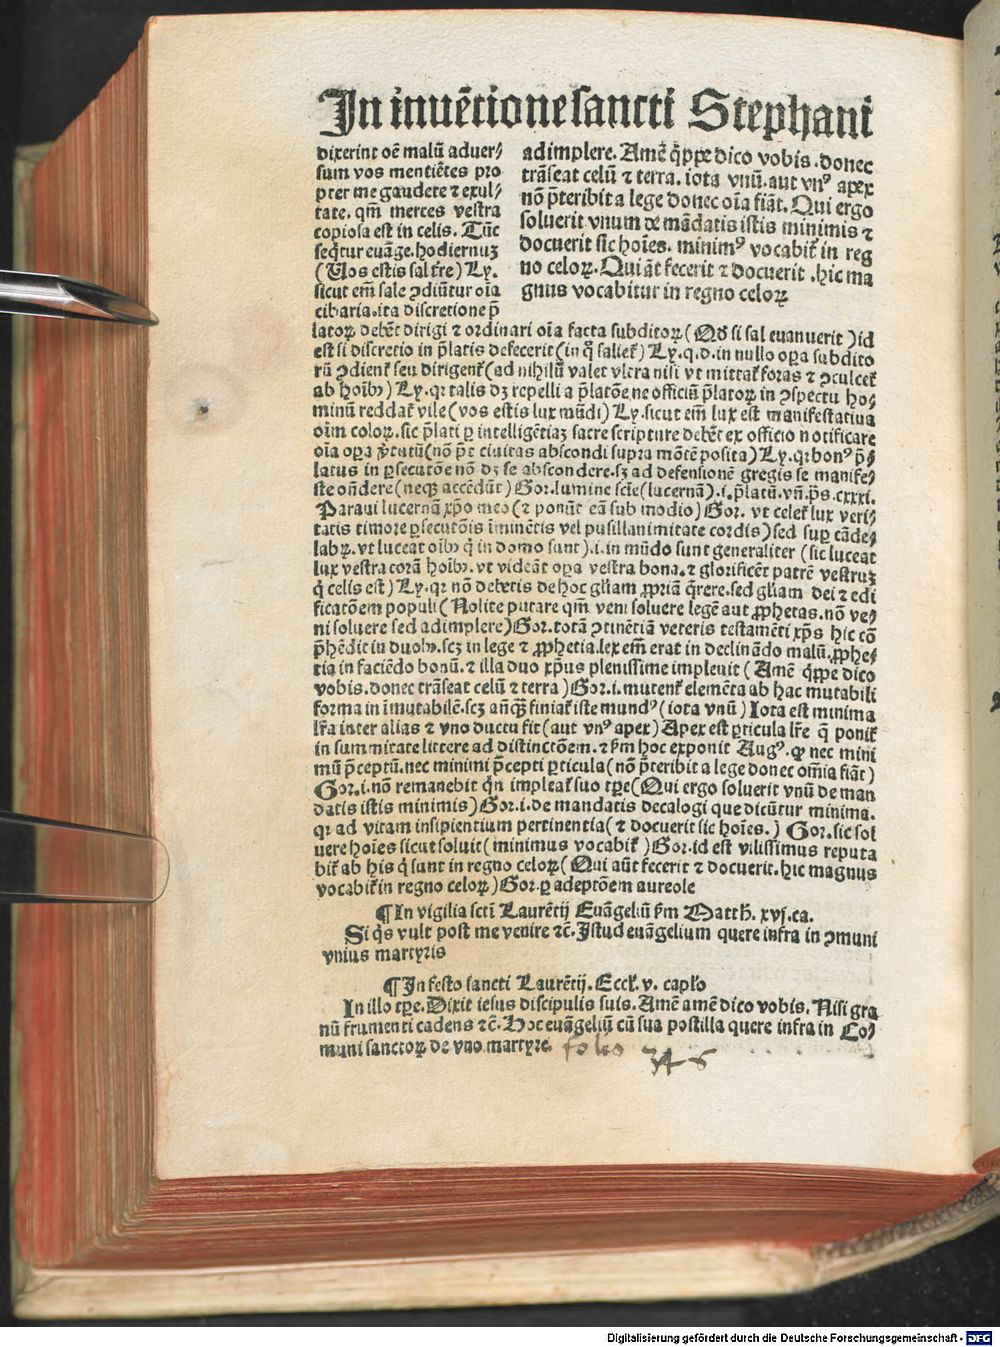 In inuētione sancti Stephani
dixerint oē malū aduer⸗
sum vos mentiētes pro
pter me gaudete ⁊ exul⸗
tate. qm̄ merces vestra
copiosa est in celis. Tūc
seqt̄ur euāge. hodiernuꝫ
(Uos estis sal tr̄e) Ly.
sicut em̄ sale ꝯdiūtur oīa
cibaria. ita discretione p̄
adimplere. Amē q̄ppe dico vobis. donec
trāseat celū ⁊ terra. iota vnū. aut vnꝰ apex
nō p̄teribit a lege donec oīa fiāt. Qui ergo
soluerit vnum de mādatis istis minimis ⁊
docuerit sic hoīes. minimꝰ vocabit̄ in reg
no celoꝝ. Qui āt fecerit ⁊ docuerit. hic ma
gnus vocabitur in regno celoꝝ
latoꝝ debēt dirigi ⁊ ordinari oīa facta subditoꝝ (Qđ si sal euanuerit) id
est si discretio in p̄latis defecerit (in q̊ saliet̄) Ly. q. d. in nullo oꝑa subdito
rū ꝯdient̄ seu dirigent̄ (ad nihilū valet vltra nisi vt mittat̄ foras ⁊ ꝯculcet̄
ab hoībꝫ) Ly. qꝛ talis dꝫ repelli a p̄latōe ne officiū p̄latoꝝ in ꝯspectu ho⸗
minū reddat̄ vile (vos estis lux mūdi) Ly. sicut em̄ lux est manifestatiua
oīm coloꝝ. sic p̄lati ꝑ intelligētiaꝫ sacre scripture debēt ex officio notificare
oīa oꝑa v̓tutū (nō pt̄ ciuitas abscondi supra mōtē posita) Ly. qꝛ bonꝰ p̄⸗
latus in ꝑsecutōe nō dꝫ se abscondere. sꝫ ad defensionē gregis se manife⸗
ste on̄dere (neqꝫ accēdūt) Gor. lumine scīe (lucernā). i. p̄latū. vn̄. ps̄. cxxxi.
Paraui lucernā xp̄o meo (⁊ ponūt eā sub modio) Gor. vt celet̄ lux veri⸗
tatis timore ꝑsecutōis īminētis vel pusillanimitate cordis) sed suꝑ cāde⸗
labꝝ. vt luceat oībꝫ q̄ in domo sunt). i. in mūdo sunt generaliter (sic luceat
lux vestra corā hoībꝫ. vt videāt oꝑa vestra bona. ⁊ glorificēt patrē vestruꝫ
q̄ celis est) Ly. qꝛ nō debetis de hoc gl̄iam ꝓpriā q̄rere. sed gl̄iam dei ⁊ edi
ficatōem populi (Nolite putare qm̄ veni soluere legē aut ꝓphetas. nō ve⸗
ni soluere sed adimplere) Gor. totā ꝯtinētiā veteris testamēti xp̄s hic cō
p̄hēdit in duobꝫ. scꝫ in lege ⁊ ꝓphetia. lex em̄ erat in declināndo malū. ꝓphe⸗
tia in faciēdo bonū. ⁊ illa duo xp̄us plenissime impleuit (Amē q̄ppe dico
vobis. donec trāseat celū ⁊ terra) Gor. i. mutent̄ elemēta ab hac mutabili
forma in īmutabilē. scꝫ anq̄ꝫ finiat̄ iste mundꝰ (iota vnū) Iota est minima
lr̄a inter alias ⁊ vno ductu fit (aut vnꝰ apex) Apex est ꝑticula lr̄e q̄ ponit̄
in summitate littere ad distinctōem. ⁊ ẜm hoc exponit Augꝰ. ꝙ nec mini
mū p̄ceptū. nec minimi p̄cepti ꝑticula (nō p̄teribit a lege donec om̄ia fiāt)
Gor. i. nō remanebit q̄n impleat̄ suo tꝑe (Qui ergo soluerit vnū de man
datis istis minimis) Gor. i. de mandatis decalogi que dicūtur minima.
qꝛ ad vitam insipientium pertinentia (⁊ docuerit sic hoīes.) Gor. sic sol
uere hoīes sicut soluit (minimus vocabit̄) Gor. id est vilissimus reputa
bit̄ ab his q̄ sunt in regno celoꝝ (Qui aūt fecerit ⁊ docuerit. hic magnus
vocabit̄ in regno celoꝝ) Gor. ꝑ adeptōem aureole
¶ In vigilia scti Laurētij Euāgeliū ẜm Matth. xvj. ca.
Si q̄s vult post me venire ⁊c̄. Istud euāgelium quere infra in ꝯmuni
vnius martyris
¶ In festo sancti Laurētij. Eccl̄. v. capl̄o
In illo tꝑe. Dixit iesus discipulis suis. Amē amē dico vobis. Nisi gra
nū frumenti cadens ⁊c̄. Hoc euāgeliū cū sua postilla quere infra in Co⸗
muni sanctoꝝ de vno martyre. folio 346
Digitalisierung gefördert durch die Deutsche Forschungsgemeinschaft - DFG